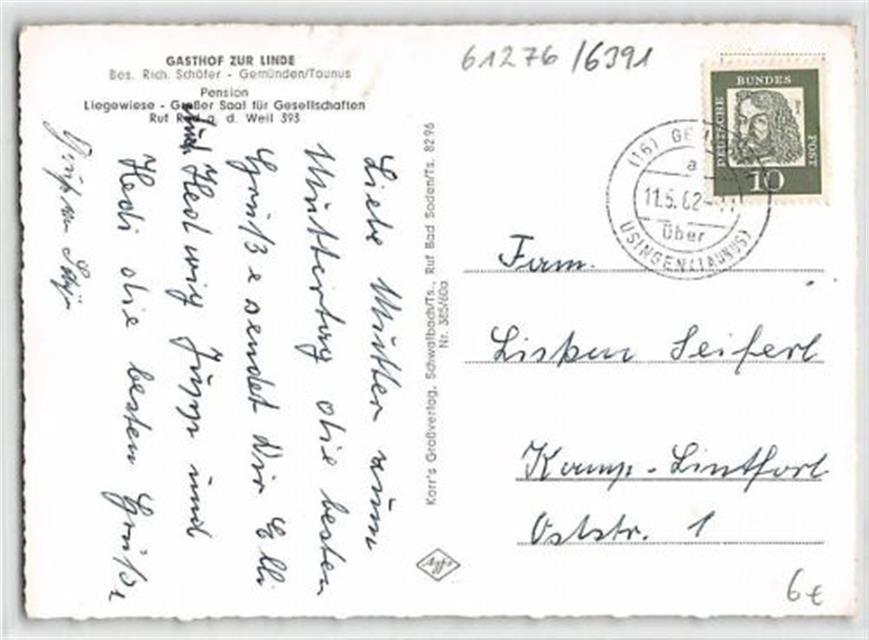 GASTHOF ZUR LINDE
Bes. Rich. Schäfer - Gemünden/Taunus
Pension
Liegewiese - Großer Saal für Gesellschaften
Ruf Rod a. d. Weil 393
61276/6391
DEUTSCHE
BUNDES
POST
10
(16)
a
11.5.62
über
USINGEN (TAUNUS)
Liebe Mutter zum
Muttertag die besten
Grüße sendet Dir Elli
und Hedwig Jupp und
Hedi die besten Grüße
Karr's Großverlag, Schwalbach/Ts., Ruf Bad Soden/Ts. 8296
Nr. 385/60a
Fam.
Seiferl
Kamp-Lintfort
Oststr. 1
6€